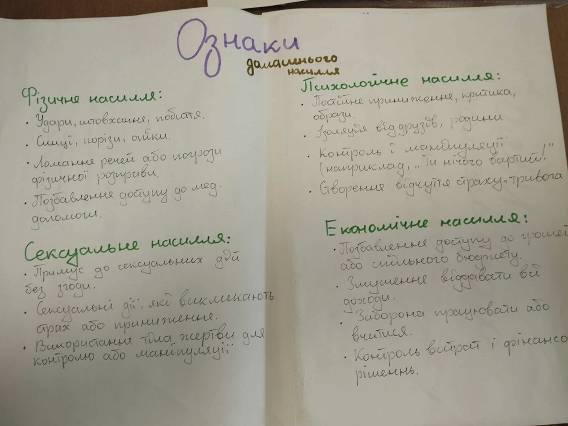 Ознаки
домашнього
насилля
Фізичне насилля:
• Удари, штовхання, побиття.
• Синці, порізи, опіки.
• Ламання речей або погрози
фізичної розправи.
• Позбавлення доступу до мед.
допомоги.
Сексуальне насилля:
• Примус до сексуальних дій
без згоди.
• Сексуальні дії, які викликають
страх або приниження.
• Використання тіла жертви для
контролю або маніпуляції
Психологічне насилля:
• Постійне приниження, критика,
образи.
• Ізоляція від друзів, родини
• Контроль і маніпуляції
(наприклад, "Ти нічого вартий!"
• Створення відчуття страху, тривоги
Економічне насилля:
• Позбавлення доступу до грошей
або спільного бюджету.
• Змушення віддавати всі
доходи.
• Заборона працювати або
вчитися.
• Контроль витрат і фінансо
рішень.